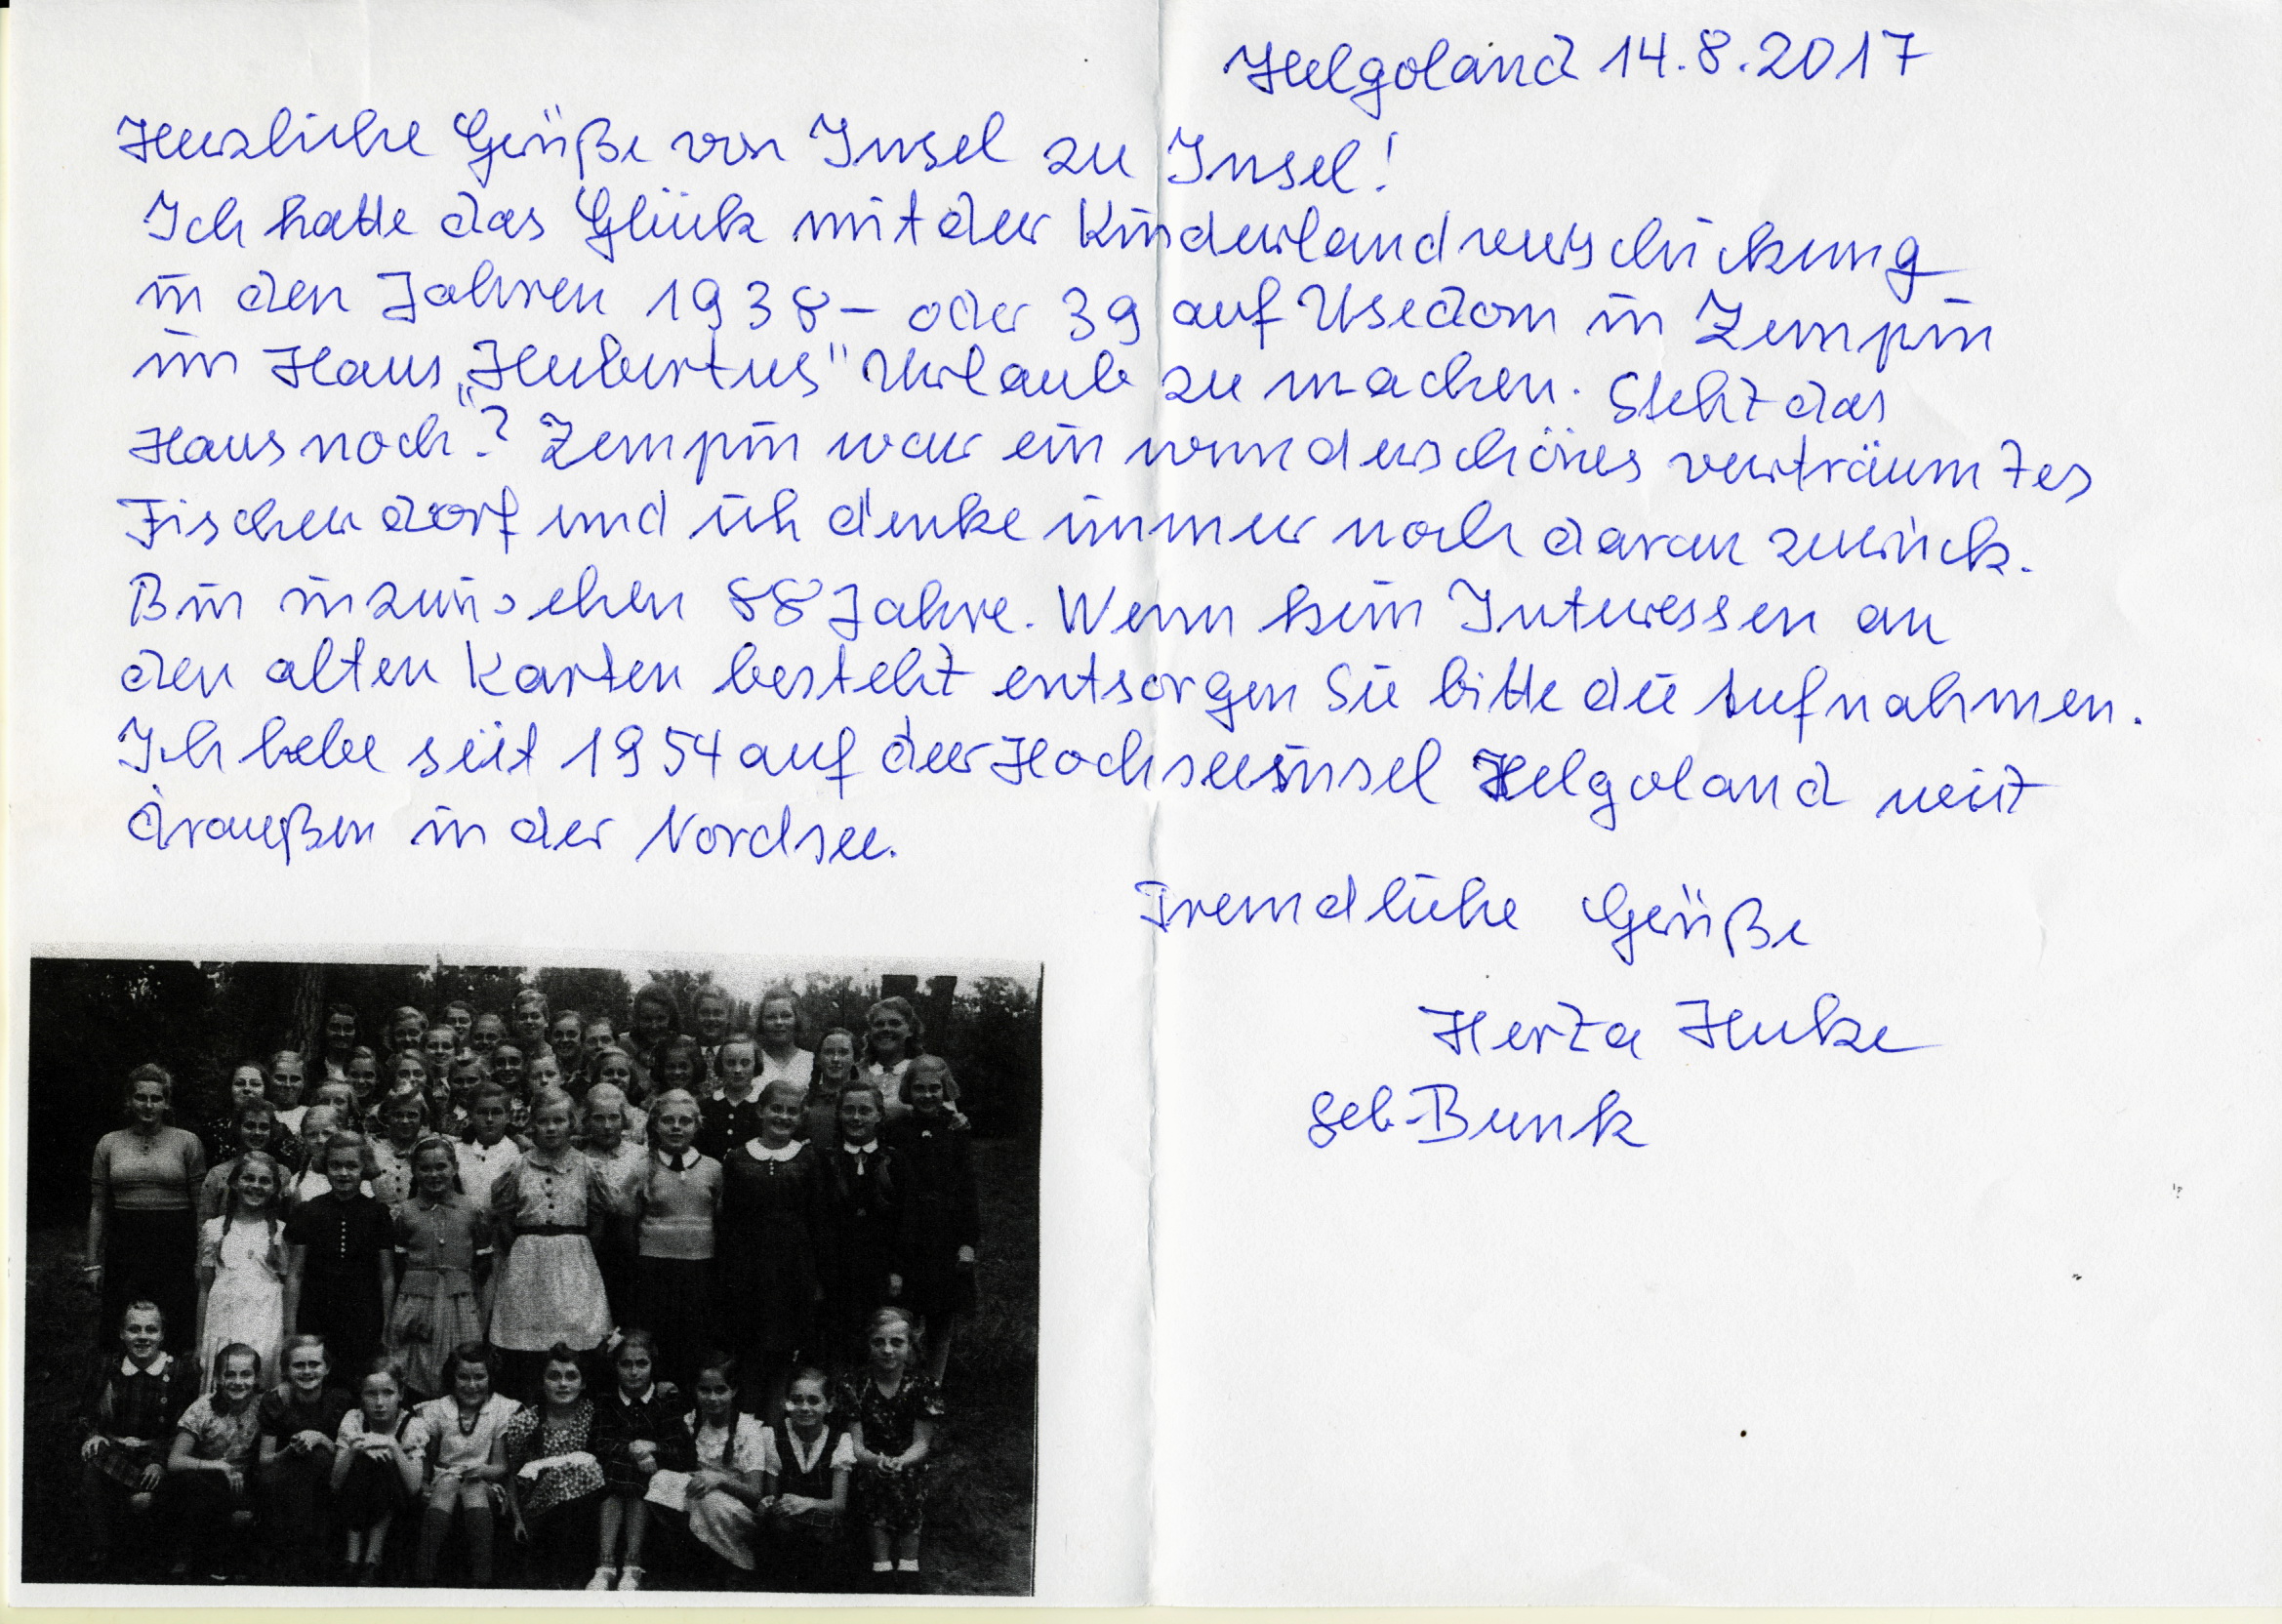 Helgoland 14.8.2017
Herzliche Grüße von Insel zu Insel!
Ich hatte das Glück mit der Kinderlandverschickung
in den Jahren 1938- oder 39 auf Usedom in Zempin
im Haus „Hubertus" Urlaub zu machen. Steht das
Haus noch? Zempin war ein wunderschönes verträumtes
Fischerdorf und ich denke immer noch daran zurück.
Bin inzwischen 88 Jahre. Wenn kein Interessen an
den alten Karten besteht entsorgen Sie bitte die Aufnahmen.
Ich lebe seit 1954 auf der Hochseeinsel Helgoland weit
draußen in der Nordsee.
Freundliche Grüße
Herta Huke
geb. Bunk